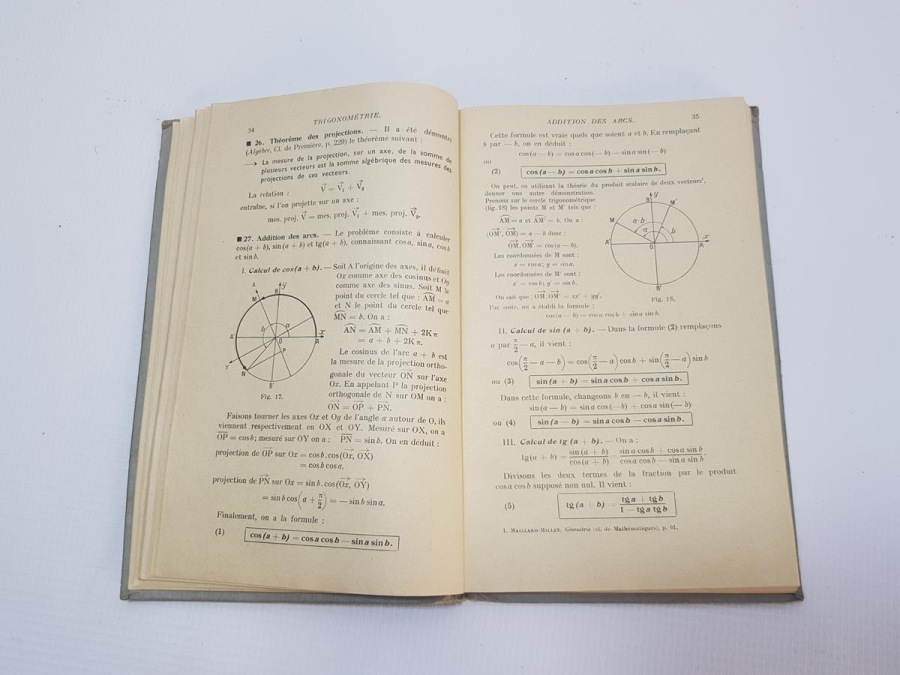 34
TRIGONOMÉTRIE.
■ 26. Théorème des projections. — Il a été démontré
(Algèbre, Cl. de Première, p. 229) le théorème suivant :
→ La mesure de la projection, sur un axe, de la somme de
plusieurs vecteurs est la somme algébrique des mesures des
projections de ces vecteurs.
La relation :
V⃗ = V⃗₁ + V⃗₂
entraîne, si l'on projette sur un axe :
mes. proj. V⃗ = mes. proj. V⃗₁ + mes. proj. V⃗₂.
■ 27. Addition des arcs. — Le problème consiste à calculer
cos(a + b), sin(a + b) et tg(a + b), connaissant cos a, sin a, cos b
et sin b.
I. Calcul de cos(a + b). — Soit A l'origine des axes, il définit
Ox comme axe des cosinus et Oy
comme axe des sinus. Soit M le
point du cercle tel que : AM = a
et N le point du cercle tel que
MN = b. On a :
AN = AM + MN + 2Kπ
= a + b + 2Kπ.
Le cosinus de l'arc a + b est
la mesure de la projection ortho-
gonale du vecteur ON sur l'axe
Ox. En appelant P la projection
orthogonale de N sur OM on a :
ON = OP + PN.
Fig. 17.
Faisons tourner les axes Ox et Oy de l'angle a autour de O, ils
viennent respectivement en OX et OY. Mesuré sur OX, on a
OP = cos b; mesuré sur OY on a : PN = sin b. On en déduit :
projection de OP sur Ox = cos b. cos(Ox, OX)
= cos b cos a,
projection de PN sur Ox = sin b. cos(Ox, OY)
= sin b cos(a + π/2) = — sin b sin a.
Finalement, on a la formule :
(1) cos(a + b) = cos a cos b — sin a sin b.
ADDITION DES ARCS.
35
Cette formule est vraie quels que soient a et b. En remplaçant
b par — b, on en déduit :
cos(a — b) = cos a cos(— b) — sin a sin(— b)
ou
(2) cos(a — b) = cos a cos b + sin a sin b.
On peut, en utilisant la théorie du produit scalaire de deux vecteurs¹,
donner une autre démonstration.
Prenons sur le cercle trigonométrique
(fig. 18) les points M et M' tels que :
AM = a et AM' = b. On a :
(OM', OM) = a — b donc :
OM. OM' = cos(a — b).
Les coordonnées de M sont :
x = cos a; y = sin a.
Les coordonnées de M' sont :
x' = cos b; y' = sin b.
On sait que : OM. OM' = xx' + yy'.
Par suite, on a établi la formule :
cos(a — b) = cos a cos b + sin a sin b.
Fig. 18.
II. Calcul de sin(a + b). — Dans la formule (2) remplaçons
a par π/2 — a, il vient :
cos(π/2 — a — b) = cos(π/2 — a) cos b + sin(π/2 — a) sin b
ou (3) sin(a + b) = sin a cos b + cos a sin b.
Dans cette formule, changeons b en — b, il vient :
sin(a — b) = sin a cos(— b) + cos a sin(— b)
ou (4) sin(a — b) = sin a cos b — cos a sin b.
III. Calcul de tg(a + b). — On a :
tg(a + b) = sin(a + b)/cos(a + b) = (sin a cos b + cos a sin b)/(cos a cos b — sin a sin b)
Divisons les deux termes de la fraction par le produit
cos a cos b supposé non nul. Il vient :
(5) tg(a + b) = (tg a + tg b)/(1 — tg a tg b)
1. MAILLARD-MILLET, Géométrie (cl. de Mathématiques), p. 61.